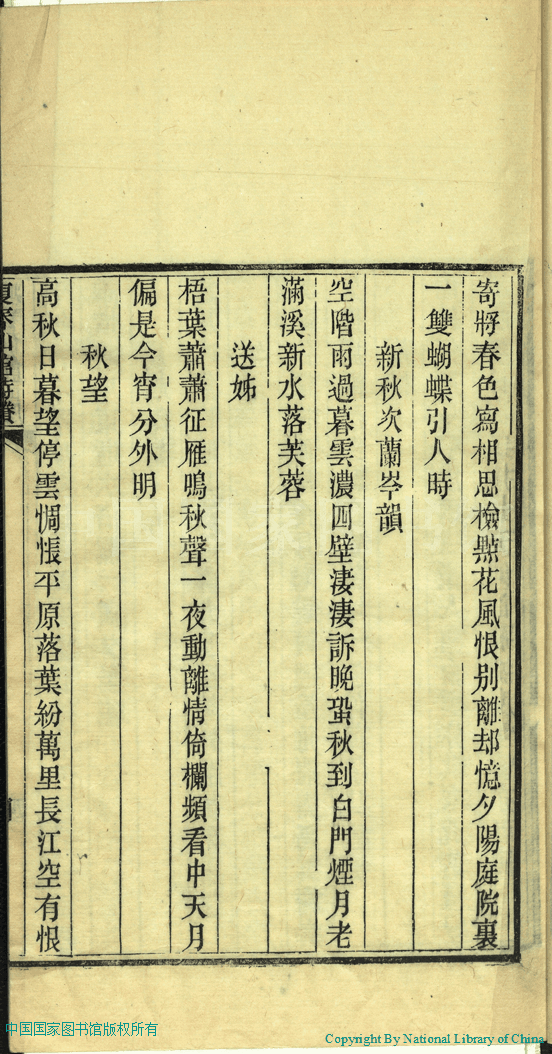 寄將春色寫相思檢點花風恨别離却憶夕陽庭院裏
一雙蝴蝶引人時
新秋次蘭岑韻
空階雨過暮雲濃四壁淒淒訴晚蛩秋到白門煙月老
滿溪新水落芙蓉
送姊
梧葉蕭蕭征雁鳴秋聲一夜動離情倚欄頻看中天月
偏是今宵分外明
秋望
高秋日暮望停雲惆悵平原落葉紛萬里長江空有恨
中国国家图书馆版权所有
Copyright By National Library of China